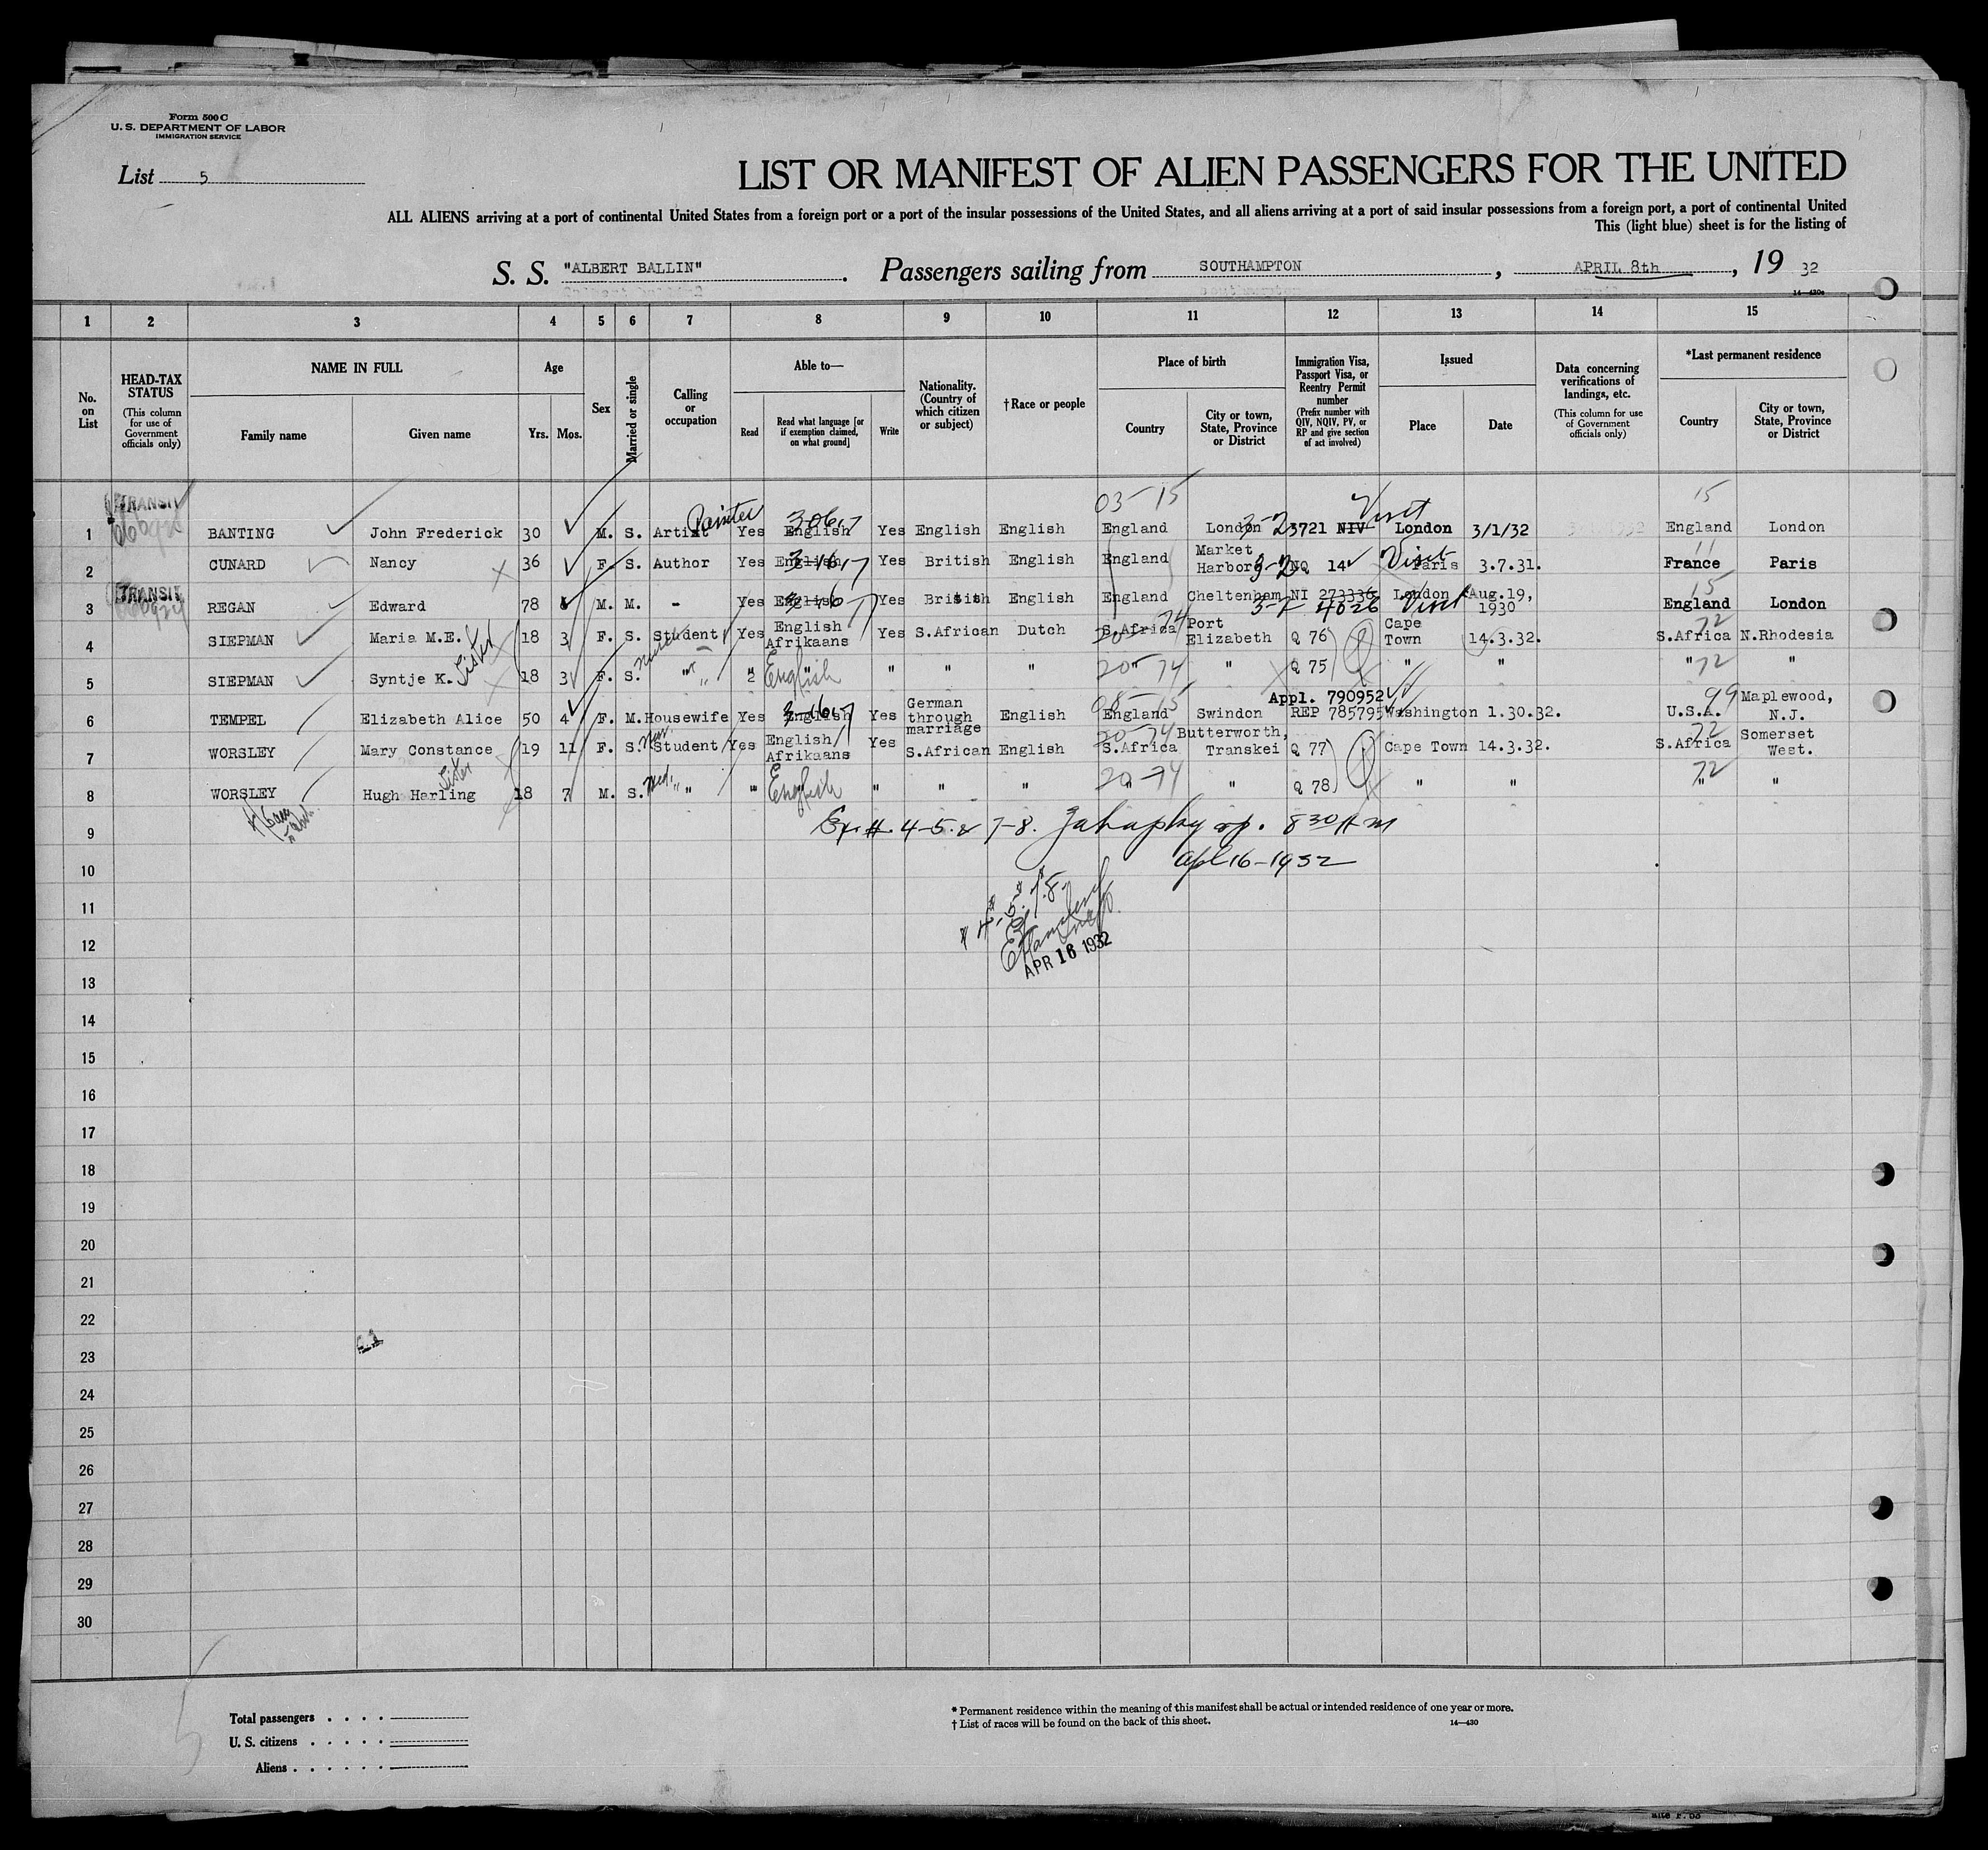 Form 500 C
U. S. DEPARTMENT OF LABOR
IMMIGRATION SERVICE
List 5
LIST OR MANIFEST OF ALIEN PASSENGERS FOR THE UNITED
ALL ALIENS arriving at a port of continental United States from a foreign port or a port of the insular possessions of the United States, and all aliens arriving at a port of said insular possessions from a foreign port, a port of continental United
This (light blue) sheet is for the listing of
S. S. "ALBERT BALLIN". Passengers sailing from SOUTHAMPTON, APRIL 8th, 19 32
14—430a
1 2 3 4 5 6 7 8 9 10 11 12 13 14 15
No. on List
HEAD-TAX STATUS
(This column for use of Government officials only)
NAME IN FULL
Family name
Given name
Age
Yrs. Mos.
Sex
Married or single
Calling or occupation
Able to—
Read
Read what language [or if exemption claimed, on what ground]
Write
Nationality. (Country of which citizen or subject)
†Race or people
Place of birth
Country
City or town, State, Province or District
Immigration Visa, Passport Visa, or Reentry Permit number
(Prefix number with QIV, NQIV, PV, or RP and give section of act involved)
Issued
Place
Date
Data concerning verifications of landings, etc.
(This column for use of Government officials only)
*Last permanent residence
Country
City or town, State, Province or District
TRANSIT 03-15 Visit 15
1 BANTING John Frederick 30 M. S. Artist Painter Yes English Yes English English England London 3-2 3721 NIV London 3/1/32 England London
2 CUNARD Nancy 36 F. S. Author Yes English 3-16 Yes British English England Market Harboro 3-2 NQ 14 Visit Paris 3.7.31. 11 France Paris
TRANSIT
3 REGAN Edward 78 M. M. - Yes English Yes British English England Cheltenham NI 273336 4626 London Visit Aug.19, 1930 15 England London
4 SIEPMAN Maria M.E. Sister 18 3 F. S. Student Yes English Afrikaans Yes S.African Dutch S.Africa Port Elizabeth Q 76 Cape Town 14.3.32. 72 S.Africa N.Rhodesia
5 SIEPMAN Syntje K. 18 3 F. S. " " English " " " 20-74 " Q 75 " " " 72 "
6 TEMPEL Elizabeth Alice 50 4 F. M. Housewife Yes English Yes German through marriage English England Swindon Appl. 790952 REP 785795 Washington 1.30.32. 99 U.S.A. Maplewood, N.J.
7 WORSLEY Mary Constance 19 11 F. S. Student Yes English Afrikaans Yes S.African English 20-74 S.Africa Butterworth, Transkei Q 77 Cape Town 14.3.32. 72 S.Africa Somerset West.
8 WORSLEY Hugh Harling Sister 18 7 M. S. " " English " " " 20-74 " " Q 78 " " 72 " "
9
Ex. #. 4-5. & 7-8. 8 30 A M
10
Apl 16-1932
11
12
APR 16 1932
13
14
15
16
17
18
19
20
21
22
23
24
25
26
27
28
29
30
Total passengers . . . .
U. S. citizens . . . . .
Aliens . . . . . .
* Permanent residence within the meaning of this manifest shall be actual or intended residence of one year or more.
† List of races will be found on the back of this sheet.
14—430